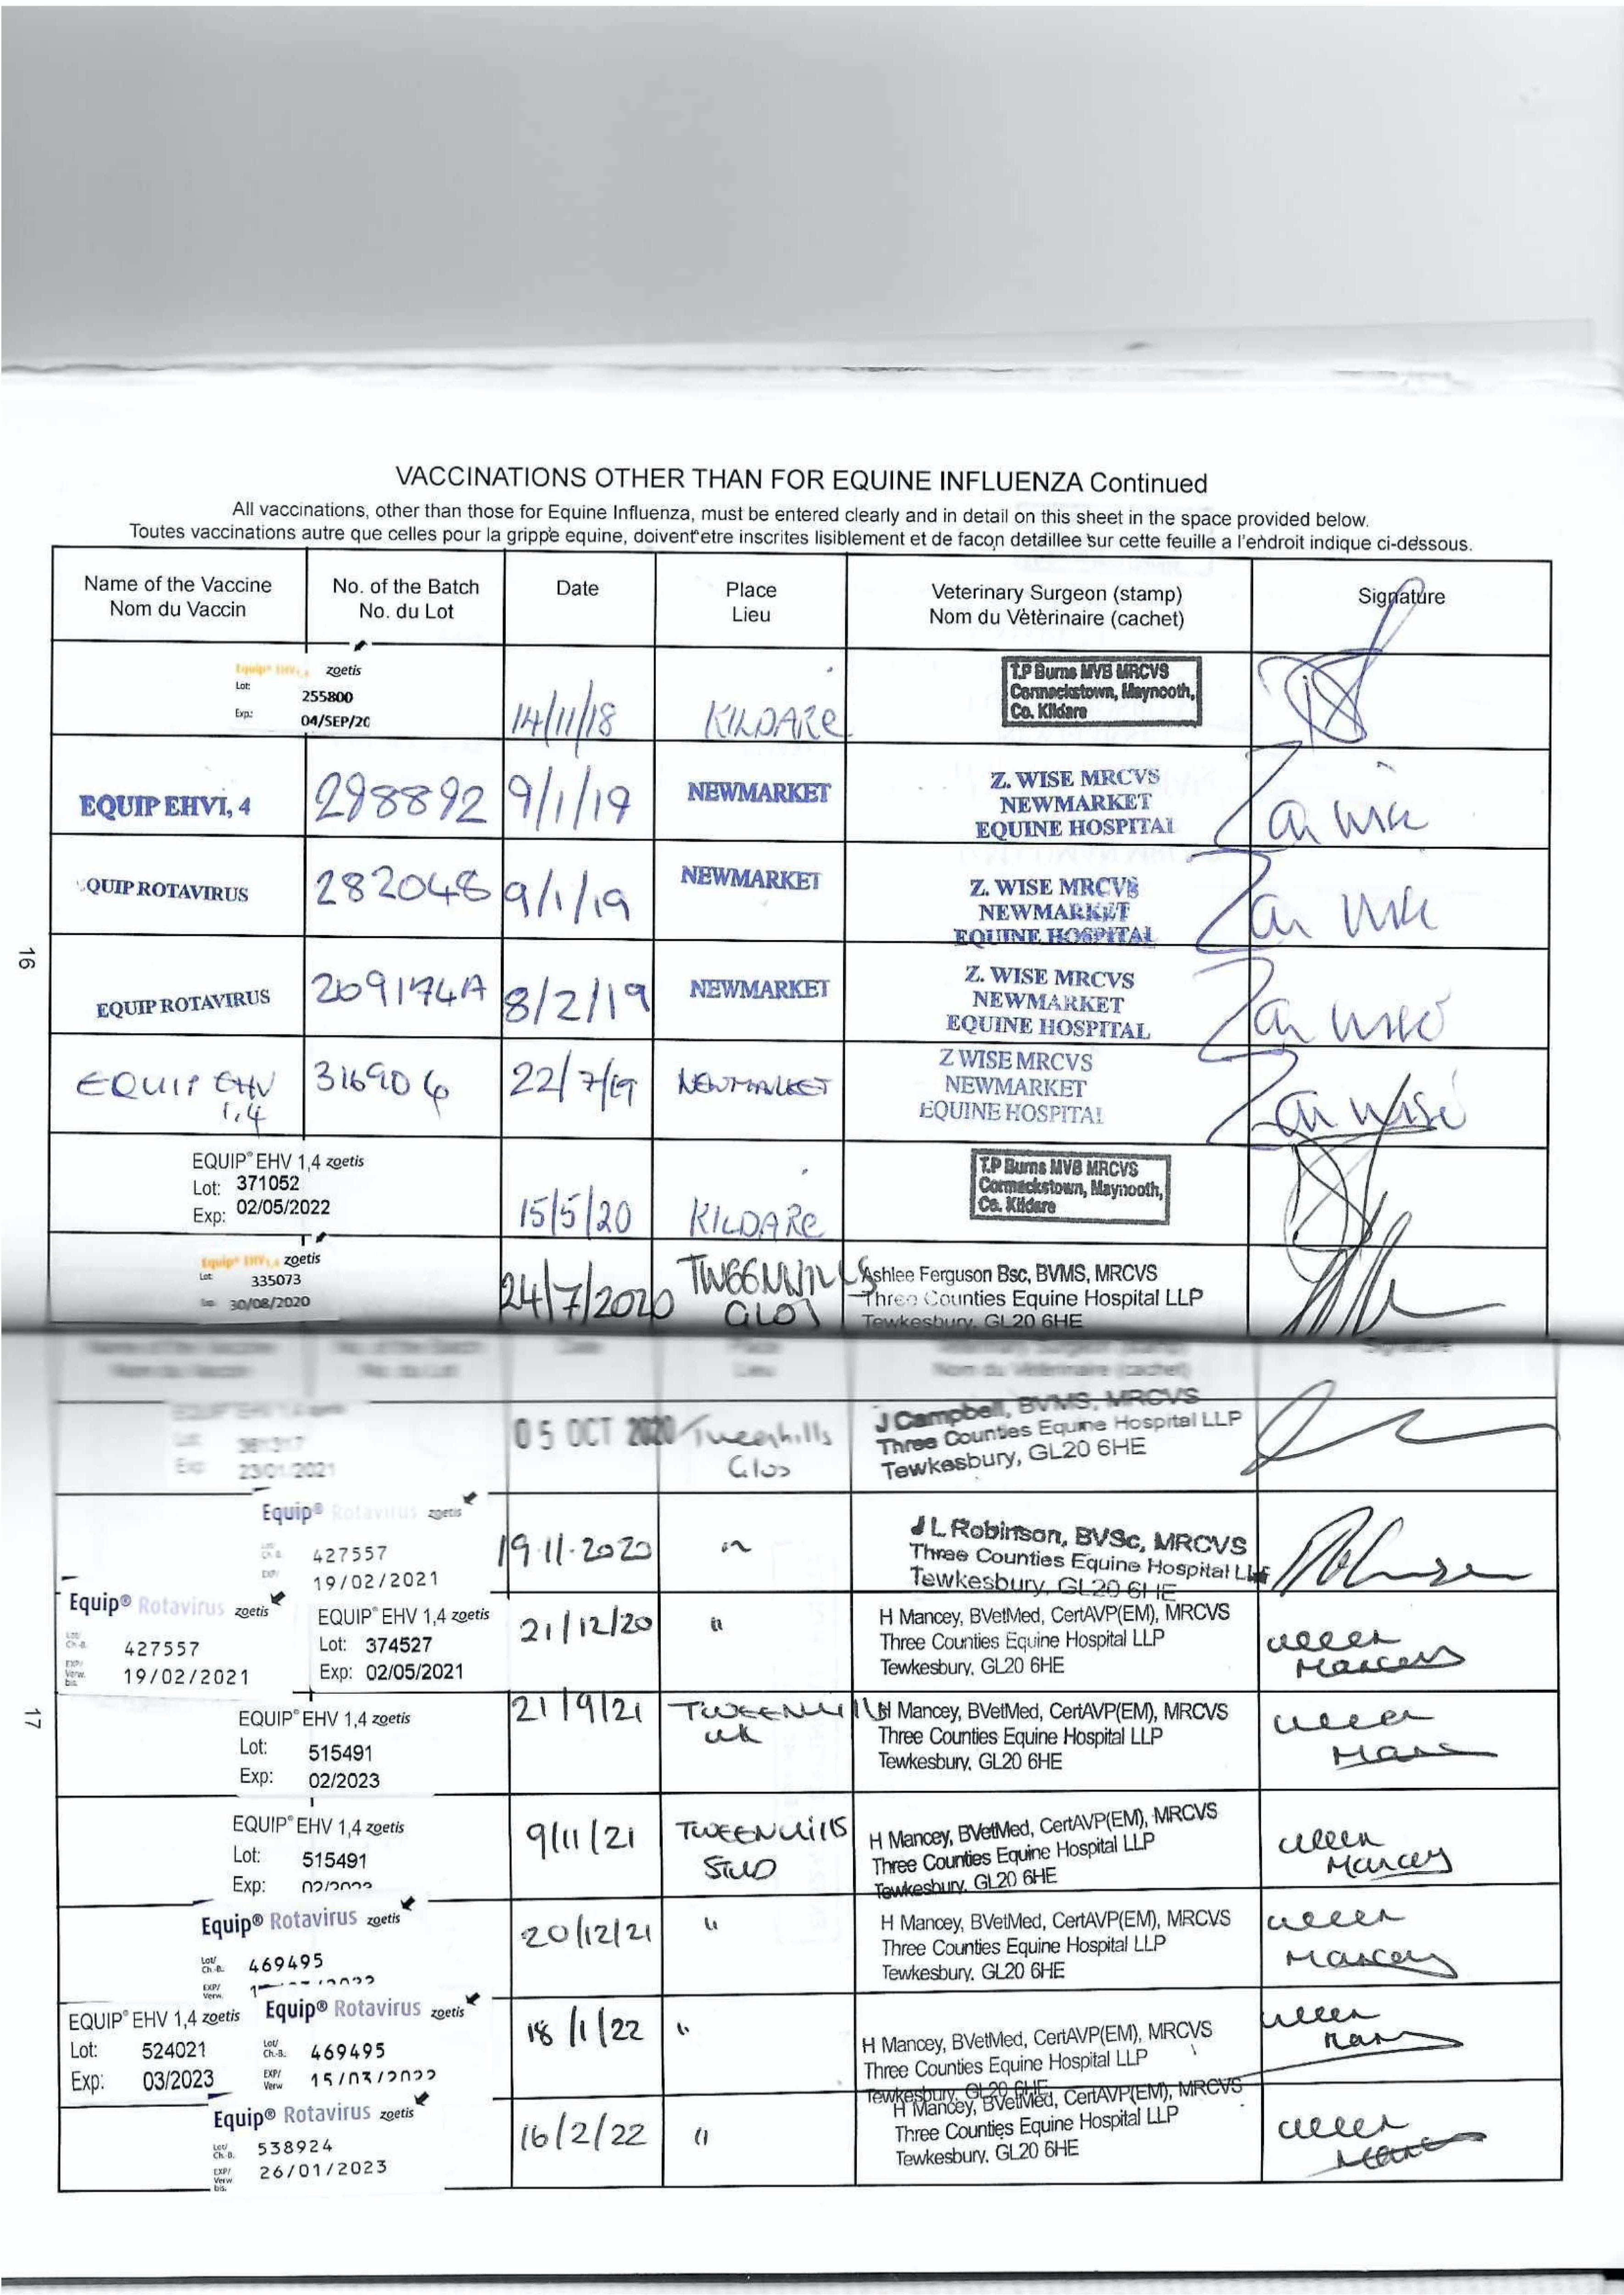 VACCINATIONS OTHER THAN FOR EQUINE INFLUENZA Continued
All vaccinations, other than those for Equine Influenza, must be entered clearly and in detail on this sheet in the space provided below.
Toutes vaccinations autre que celles pour la grippe equine, doivent etre inscrites lisiblement et de facon detaillee sur cette feuille a l'endroit indique ci-dessous.
Name of the Vaccine No. of the Batch Date Place Veterinary Surgeon (stamp) Signature
Nom du Vaccin No. du Lot Lieu Nom du Vètèrinaire (cachet)
Equip® EHV1,4 zoetis
Lot: 255800
Exp: 04/SEP/20
14/11/18 KILDARE
T.P Burns MVB MRCVS
Cormackstown, Maynooth,
Co. Kildare
EQUIP EHV1, 4 298892 9/1/19 NEWMARKET
Z. WISE MRCVS
NEWMARKET
EQUINE HOSPITAL
QUIP ROTAVIRUS 282048 9/1/19 NEWMARKET
Z. WISE MRCVS
NEWMARKET
EQUINE HOSPITAL
16
EQUIP ROTAVIRUS 209174A 8/2/19 NEWMARKET
Z. WISE MRCVS
NEWMARKET
EQUINE HOSPITAL
EQUIP EHV 316906 22/7/19 NEWMARKET
1.4
Z WISE MRCVS
NEWMARKET
EQUINE HOSPITAL
EQUIP® EHV 1,4 zoetis
Lot: 371052
Exp: 02/05/2022
15/5/20 KILDARE
T.P Burns MVB MRCVS
Cormackstown, Maynooth,
Co. Kildare
Equip® EHV1,4 zoetis
Lot: 335073
30/08/2020
24/7/2020 TWEENHILLS
GLOS
Ashlee Ferguson Bsc, BVMS, MRCVS
Three Counties Equine Hospital LLP
Tewkesbury, GL20 6HE
Name of the Vaccine No. of the Batch Date Place Veterinary Surgeon (stamp) Signature
Nom du Vaccin No. du Lot Lieu Nom du Vètèrinaire (cachet)
EQUIP® EHV 1,4 zoetis
Lot: 361317
Exp: 23/01/2021
05 OCT 2020 Tweenhills
Glos
J Campbell, BVMS, MRCVS
Three Counties Equine Hospital LLP
Tewkesbury, GL20 6HE
Equip® Rotavirus zoetis
427557
19/02/2021
19.11.2020 "
J L Robinson, BVSc, MRCVS
Three Counties Equine Hospital LLP
Tewkesbury, GL20 6HE
Equip® Rotavirus zoetis
427557
19/02/2021
EQUIP® EHV 1,4 zoetis
Lot: 374527
Exp: 02/05/2021
21/12/20 "
H Mancey, BVetMed, CertAVP(EM), MRCVS
Three Counties Equine Hospital LLP
Tewkesbury, GL20 6HE
17
EQUIP® EHV 1,4 zoetis
Lot: 515491
Exp: 02/2023
21/9/21 TWEENHILLS
UK
H Mancey, BVetMed, CertAVP(EM), MRCVS
Three Counties Equine Hospital LLP
Tewkesbury, GL20 6HE
EQUIP® EHV 1,4 zoetis
Lot: 515491
Exp:
9/11/21 TWEENHILLS
STUD
H Mancey, BVetMed, CertAVP(EM), MRCVS
Three Counties Equine Hospital LLP
Tewkesbury, GL20 6HE
Equip® Rotavirus zoetis
Lot/ Ch.-B. 469495
EXP/ Verw.
20/12/21 "
H Mancey, BVetMed, CertAVP(EM), MRCVS
Three Counties Equine Hospital LLP
Tewkesbury, GL20 6HE
EQUIP® EHV 1,4 zoetis
Lot: 524021
Exp: 03/2023
Equip® Rotavirus zoetis
Lot/ Ch.-B. 469495
EXP/ Verw 15/03/2022
18/1/22 "
H Mancey, BVetMed, CertAVP(EM), MRCVS
Three Counties Equine Hospital LLP
Tewkesbury, GL20 6HE
Equip® Rotavirus zoetis
Lot/ Ch.-B. 538924
EXP/ Verw. bis. 26/01/2023
16/2/22 "
H Mancey, BVetMed, CertAVP(EM), MRCVS
Three Counties Equine Hospital LLP
Tewkesbury, GL20 6HE